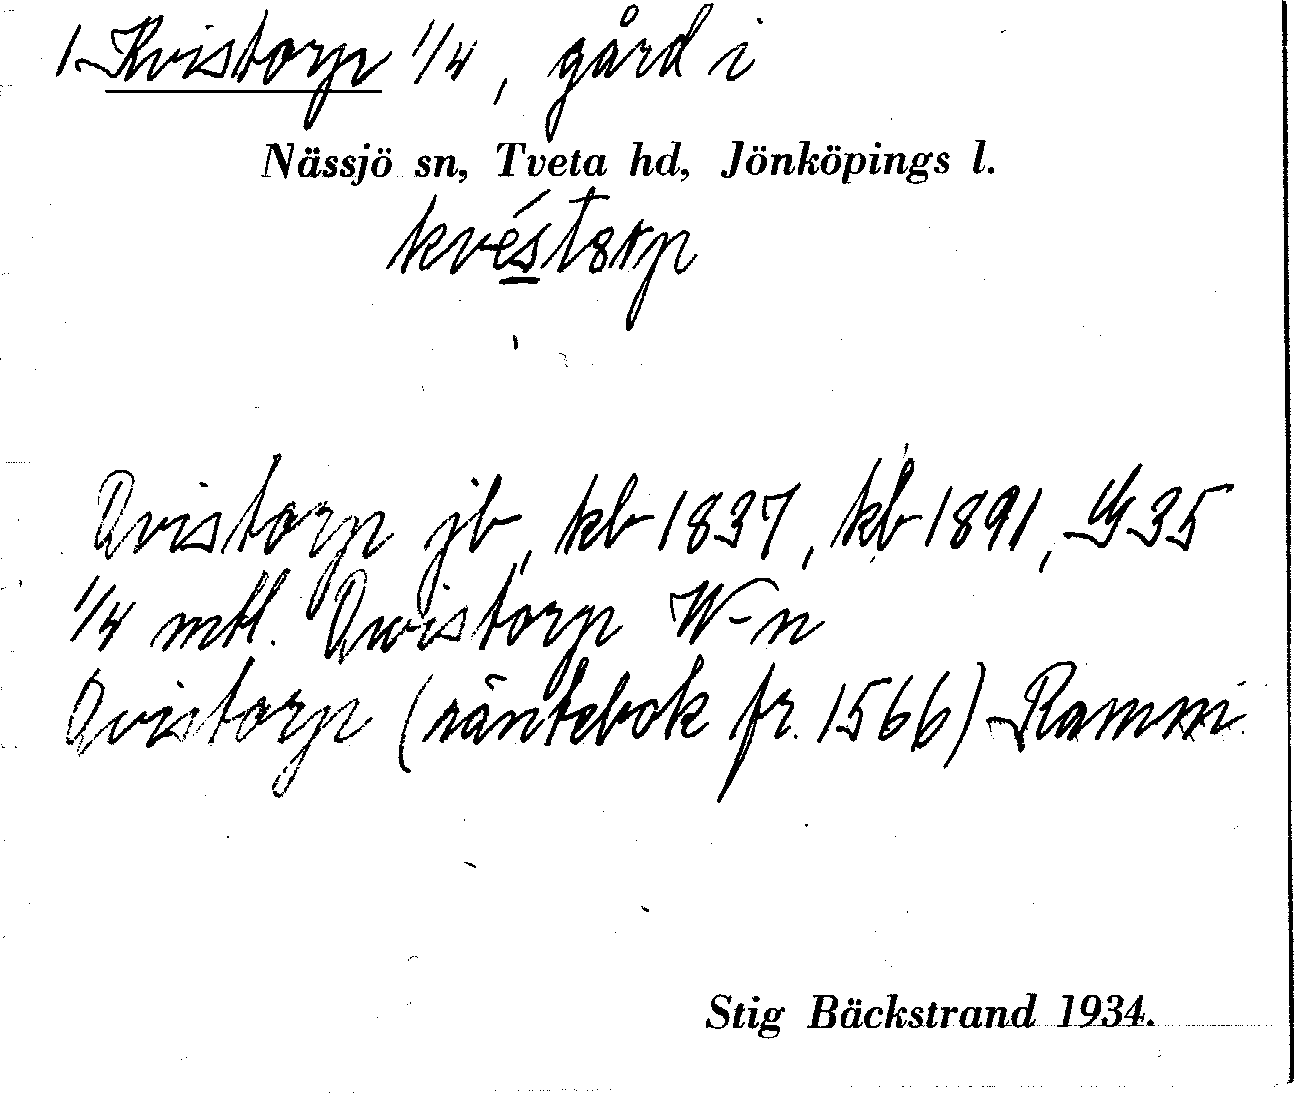 1 Kvistorp 1/4, gård i
Nässjö sn, Tveta hd, Jönköpings l.
kvéstorp
Qvistorp jb, kb 1837, kb 1891, G 35
1/4 mtl. Qwistorp W-n
Qvistorp (räntebok fr. 1566) Ramm
Stig Bäckstrand 1934.